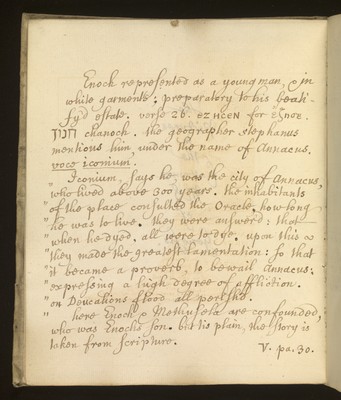 Enoch represented as a young man, & in
white garments: preparatory to his beati-
fy'd estate. verse 26. EZHCEN for εζησε.
חנוך chanoch. the geographer stephanus
mentions him, under the name of Annacus.
voce iconium.
" Iconium, says he, was the city of Annacus,
who lived above 300 years. the inhabitants
" of the place consulted the Oracle, how long
" he was to live. they were answerd: that
" when he dyed, all were to dye. upon this
" they made the greatest lamentation: so that
" it became a proverb, to bewail Annacus:
" expressing a high degree of affliction.
" on Deucalions flood all perish'd.
" here Enoch & Methusela are confounded,
who was Enochs son. but tis plain, the story is
taken from scripture.
V. pa. 30.